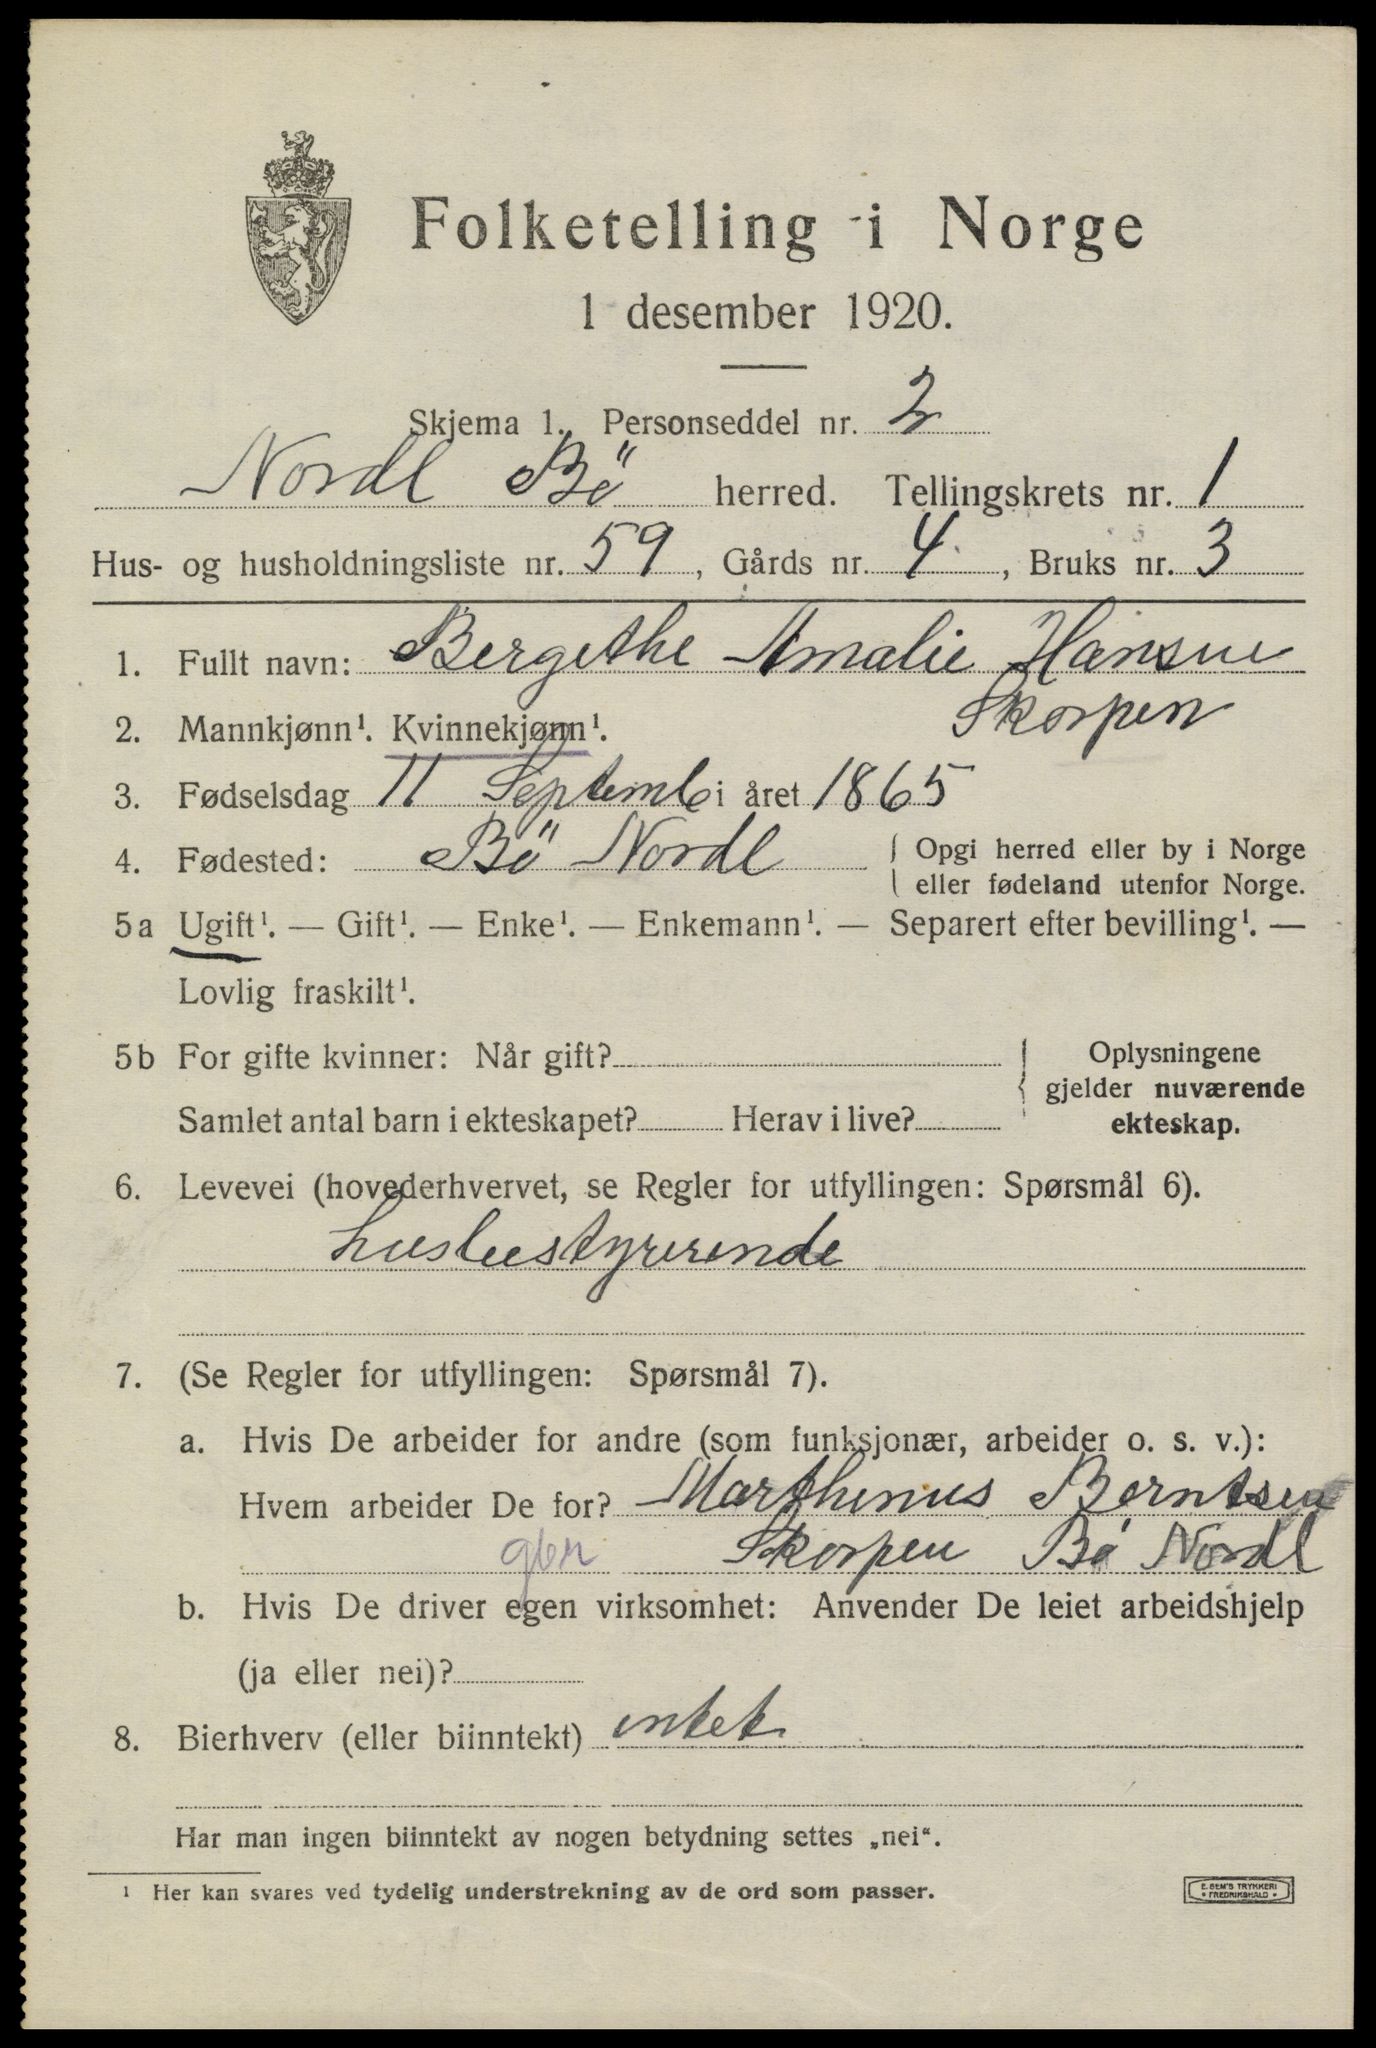 Folketelling i Norge
1 desember 1920.
Skjema 1. Personseddel nr. 2
Nordl Bö herred. Tellingskrets nr. 1
Hus- og husholdningsliste nr. 59, Gårds nr. 4, Bruks nr. 3
1. Fullt navn: Bergethe Amalie Hansen
Skorpen
2. Mannkjønn¹. Kvinnekjønn¹.
3. Fødselsdag 11 Septemb i året 1865
4. Fødested: Bö Nordl { Opgi herred eller by i Norge
eller fødeland utenfor Norge.
5a Ugift¹. — Gift¹. — Enke¹. — Enkemann¹. — Separert efter bevilling¹. —
Lovlig fraskilt¹.
5b For gifte kvinner: Når gift? { Oplysningene
gjelder nuværende
Samlet antal barn i ekteskapet? Herav i live? ekteskap.
6. Levevei (hovederhvervet, se Regler for utfyllingen: Spørsmål 6).
husbestyrerende
7. (Se Regler for utfyllingen: Spørsmål 7).
a. Hvis De arbeider for andre (som funksjonær, arbeider o. s. v.):
Hvem arbeider De for? Marthinus Berntsen
Skorpen Bö Nordl
b. Hvis De driver egen virksomhet: Anvender De leiet arbeidshjelp
(ja eller nei)?
8. Bierhverv (eller biinntekt) intet
Har man ingen biinntekt av nogen betydning settes „nei“.
¹ Her kan svares ved tydelig understrekning av de ord som passer.
E. SEM'S TRYKKERI
• FREDRIKSHALD •